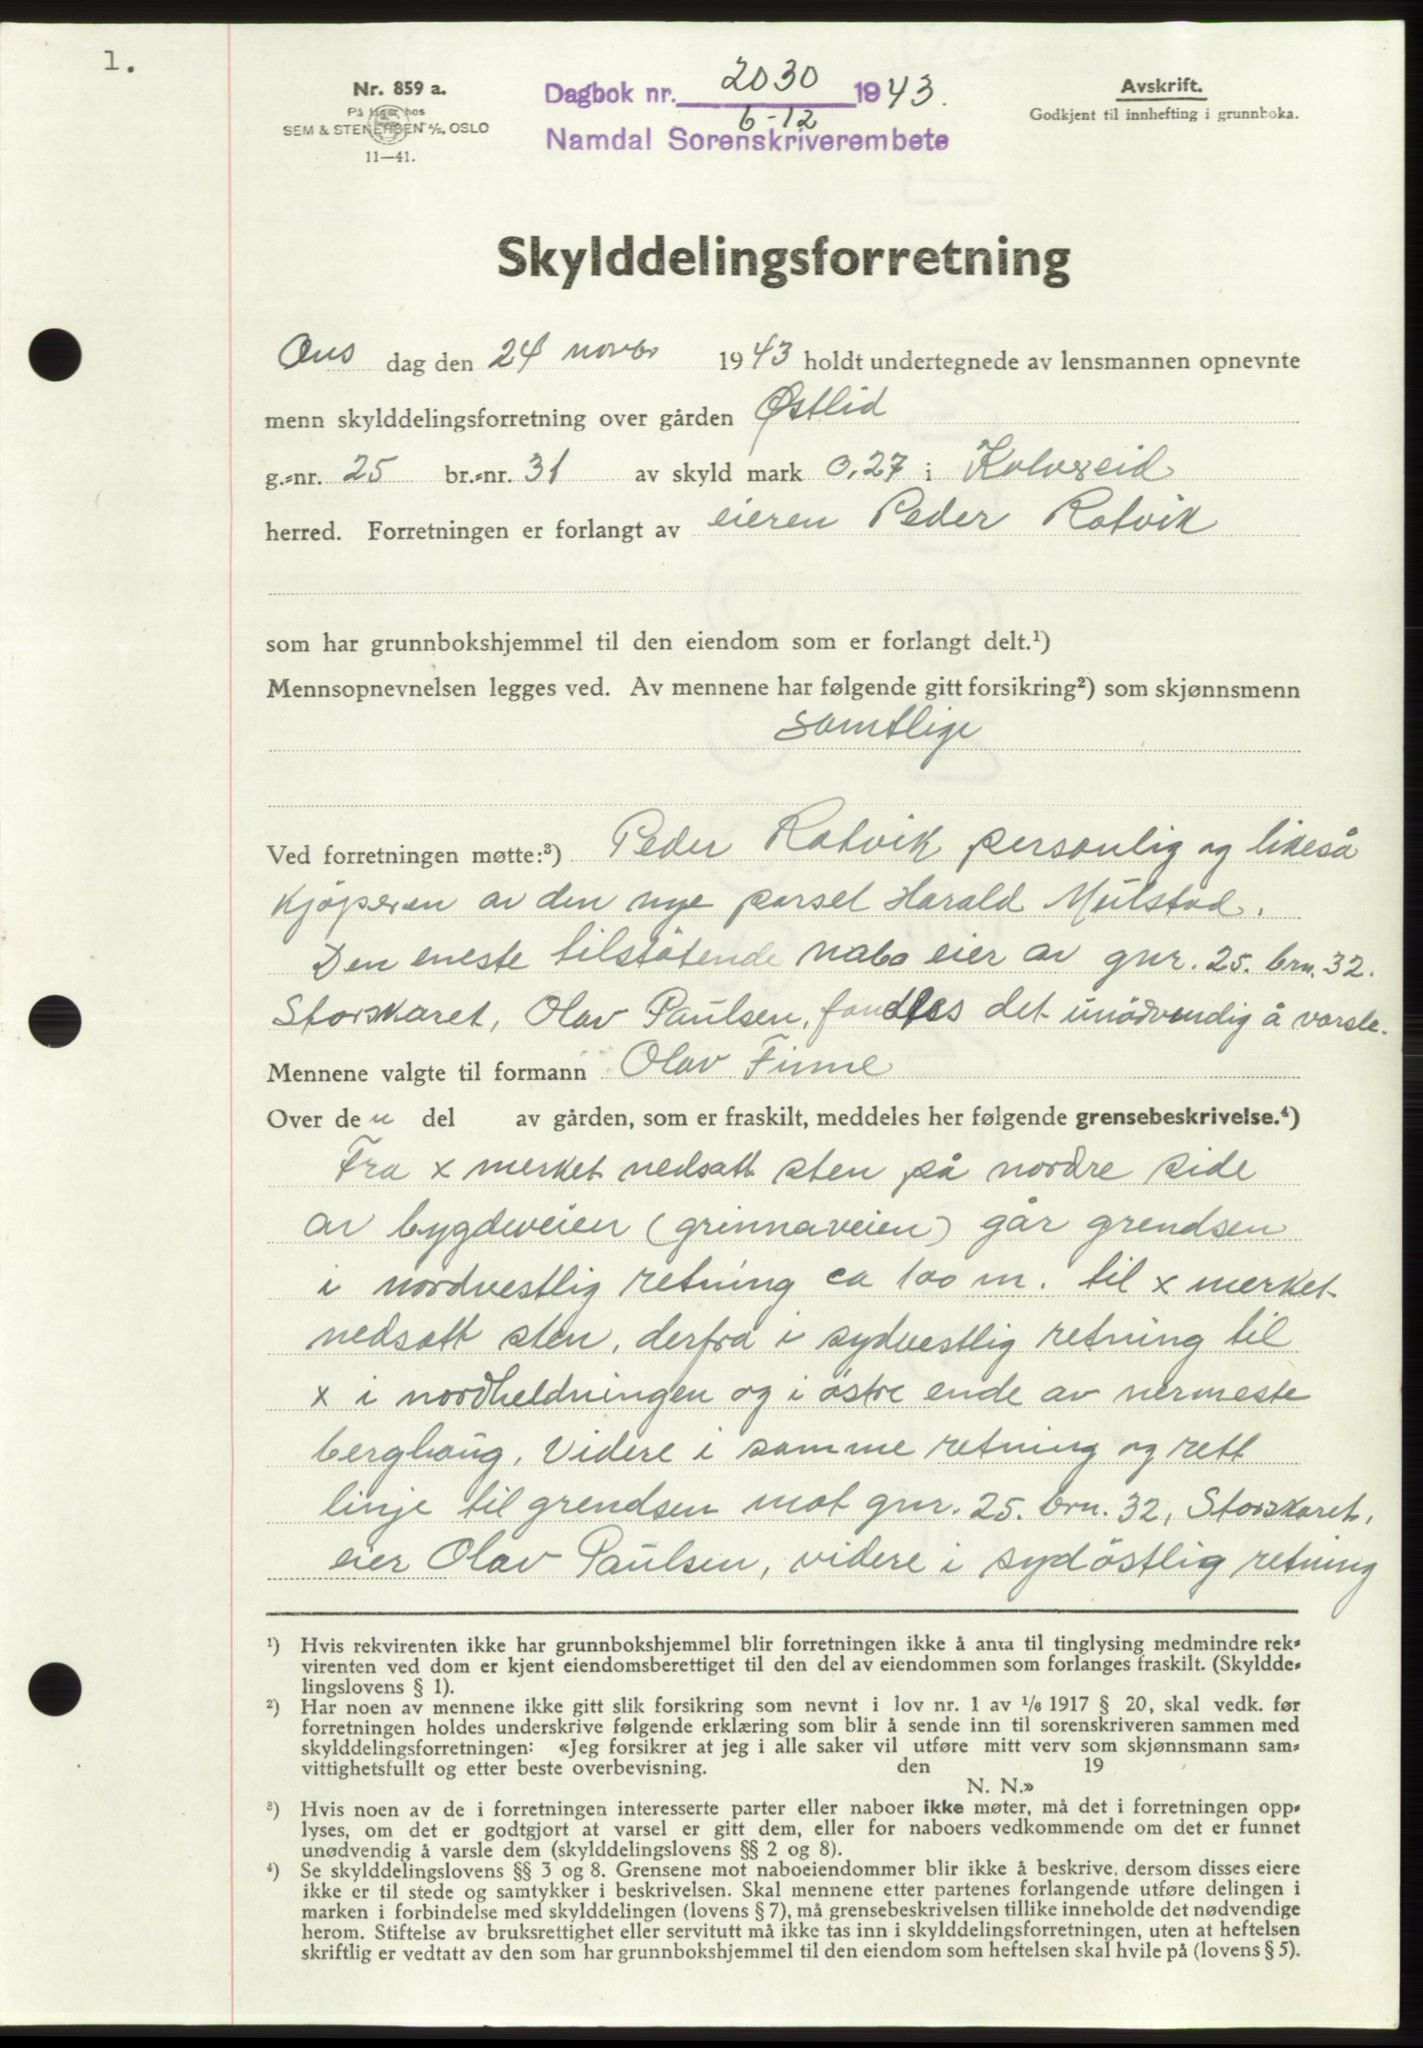 1.
Nr. 859 a.
På lager hos
SEM & STENERSEN A/S, OSLO
11—41.
Dagbok nr. 2030 1943.
6-12
Namdal Sorenskriverembete
Avskrift.
Godkjent til innhefting i grunnboka.
Skylddelingsforretning
Ons dag den 24 novbr 1943 holdt undertegnede av lensmannen opnevnte
menn skylddelingsforretning over gården Østlid
g.-nr. 25 br.-nr. 31 av skyld mark 0,27 i Kolvereid
herred. Forretningen er forlangt av eieren Peder Rotvik
som har grunnbokshjemmel til den eiendom som er forlangt delt.¹)
Mennsopnevnelsen legges ved. Av mennene har følgende gitt forsikring²) som skjønnsmenn
samtlige
Ved forretningen møtte:³) Peder Rotvik personlig og likeså
kjøperen av den nye parsel Harald Mulstad.
Den eneste tilstøtende nabo eier av gnr. 25. brn. 32.
Storskaret, Olav Paulsen, fandtes det unødvendig å varsle.
Mennene valgte til formann Olav Finne
Over den del av gården, som er fraskilt, meddeles her følgende grensebeskrivelse.⁴)
Fra x merket nedsatt sten på nordre side
av bygdeveien (grinnaveien) går grendsen
i nordvestlig retning ca 100 m. til x merket
nedsatt sten, derfra i sydvestlig retning til
x i nordheldningen og i østre ende av nermeste
berghaug, videre i samme retning og rett
linje til grendsen mot gnr. 25. brn. 32, Storskaret,
eier Olav Paulsen, videre i sydøstlig retning
¹) Hvis rekvirenten ikke har grunnbokshjemmel blir forretningen ikke å anta til tinglysing medmindre rek-
virenten ved dom er kjent eiendomsberettiget til den del av eiendommen som forlanges fraskilt. (Skyldde-
lingslovens § 1).
²) Har noen av mennene ikke gitt slik forsikring som nevnt i lov nr. 1 av 1/6 1917 § 20, skal vedk. før
forretningen holdes underskrive følgende erklæring som blir å sende inn til sorenskriveren sammen med
skylddelingsforretningen: «Jeg forsikrer at jeg i alle saker vil utføre mitt verv som skjønnsmann sam-
vittighetsfullt og etter beste overbevisning. den 19
N. N.»
³) Hvis noen av de i forretningen interesserte parter eller naboer ikke møter, må det i forretningen opp-
lyses, om det er godtgjort at varsel er gitt dem, eller for naboers vedkommende om det er funnet
unødvendig å varsle dem (skylddelingslovens §§ 2 og 8).
⁴) Se skylddelingslovens §§ 3 og 8. Grensene mot naboeiendommer blir ikke å beskrive, dersom disses eiere
ikke er til stede og samtykker i beskrivelsen. Skal mennene etter partenes forlangende utføre delingen i
marken i forbindelse med skylddelingen (lovens § 7), må grensebeskrivelsen tillike inneholde det nødvendige
herom. Stiftelse av bruksrettighet eller servitutt må ikke tas inn i skylddelingsforretningen, uten at heftelsen
skriftlig er vedtatt av den som har grunnbokshjemmel til den eiendom som heftelsen skal hvile på (lovens § 5).